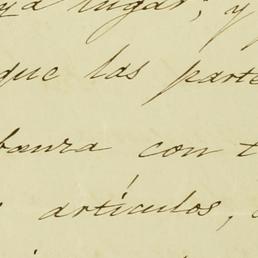 lugar", y
que las parte
con t
artículos,